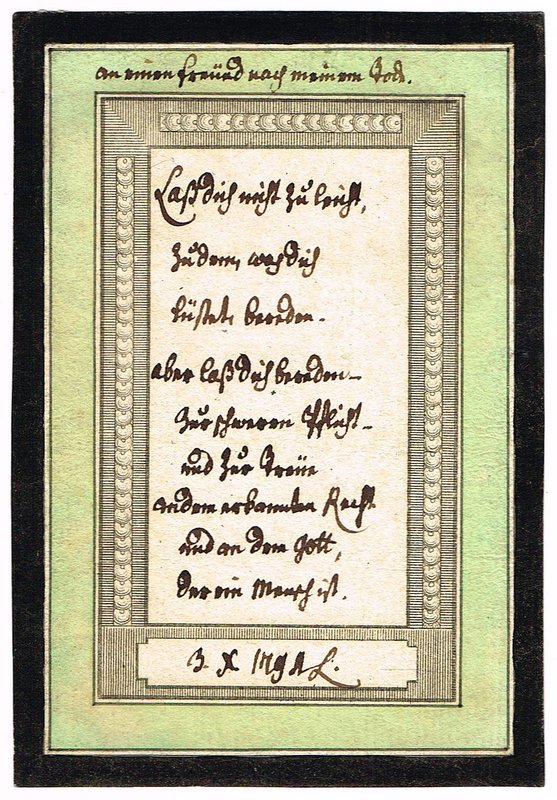 an einen Freünd nach meinem Tode.
Laß dich nicht zu leicht,
zu dem, was dich
lüstet, bereden.
aber laß dich bereden
zur schweren Pflicht
und zur Treüe
an dem erkannten Recht
und an dem Gott,
der ein Mensch ist.
3. X. L.